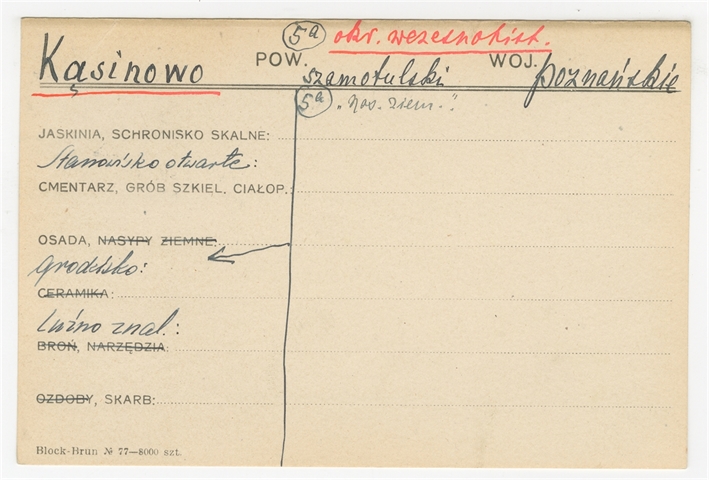 5a okr. wczesnohist.
Kąsinowo POW. szamotulski WOJ. poznańskie
5a "nas. ziem."
JASKINIA, SCHRONISKO SKALNE:
Stanowisko otwarte:
CMENTARZ, GRÓB SZKIEL. CIAŁOP.:
OSADA, NASYPY ZIEMNE:
Grodzisko:
CERAMIKA:
Luźno znal.:
BROŃ, NARZĘDZIA:
OZDOBY, SKARB:
Block-Brun № 77—8000 szt.